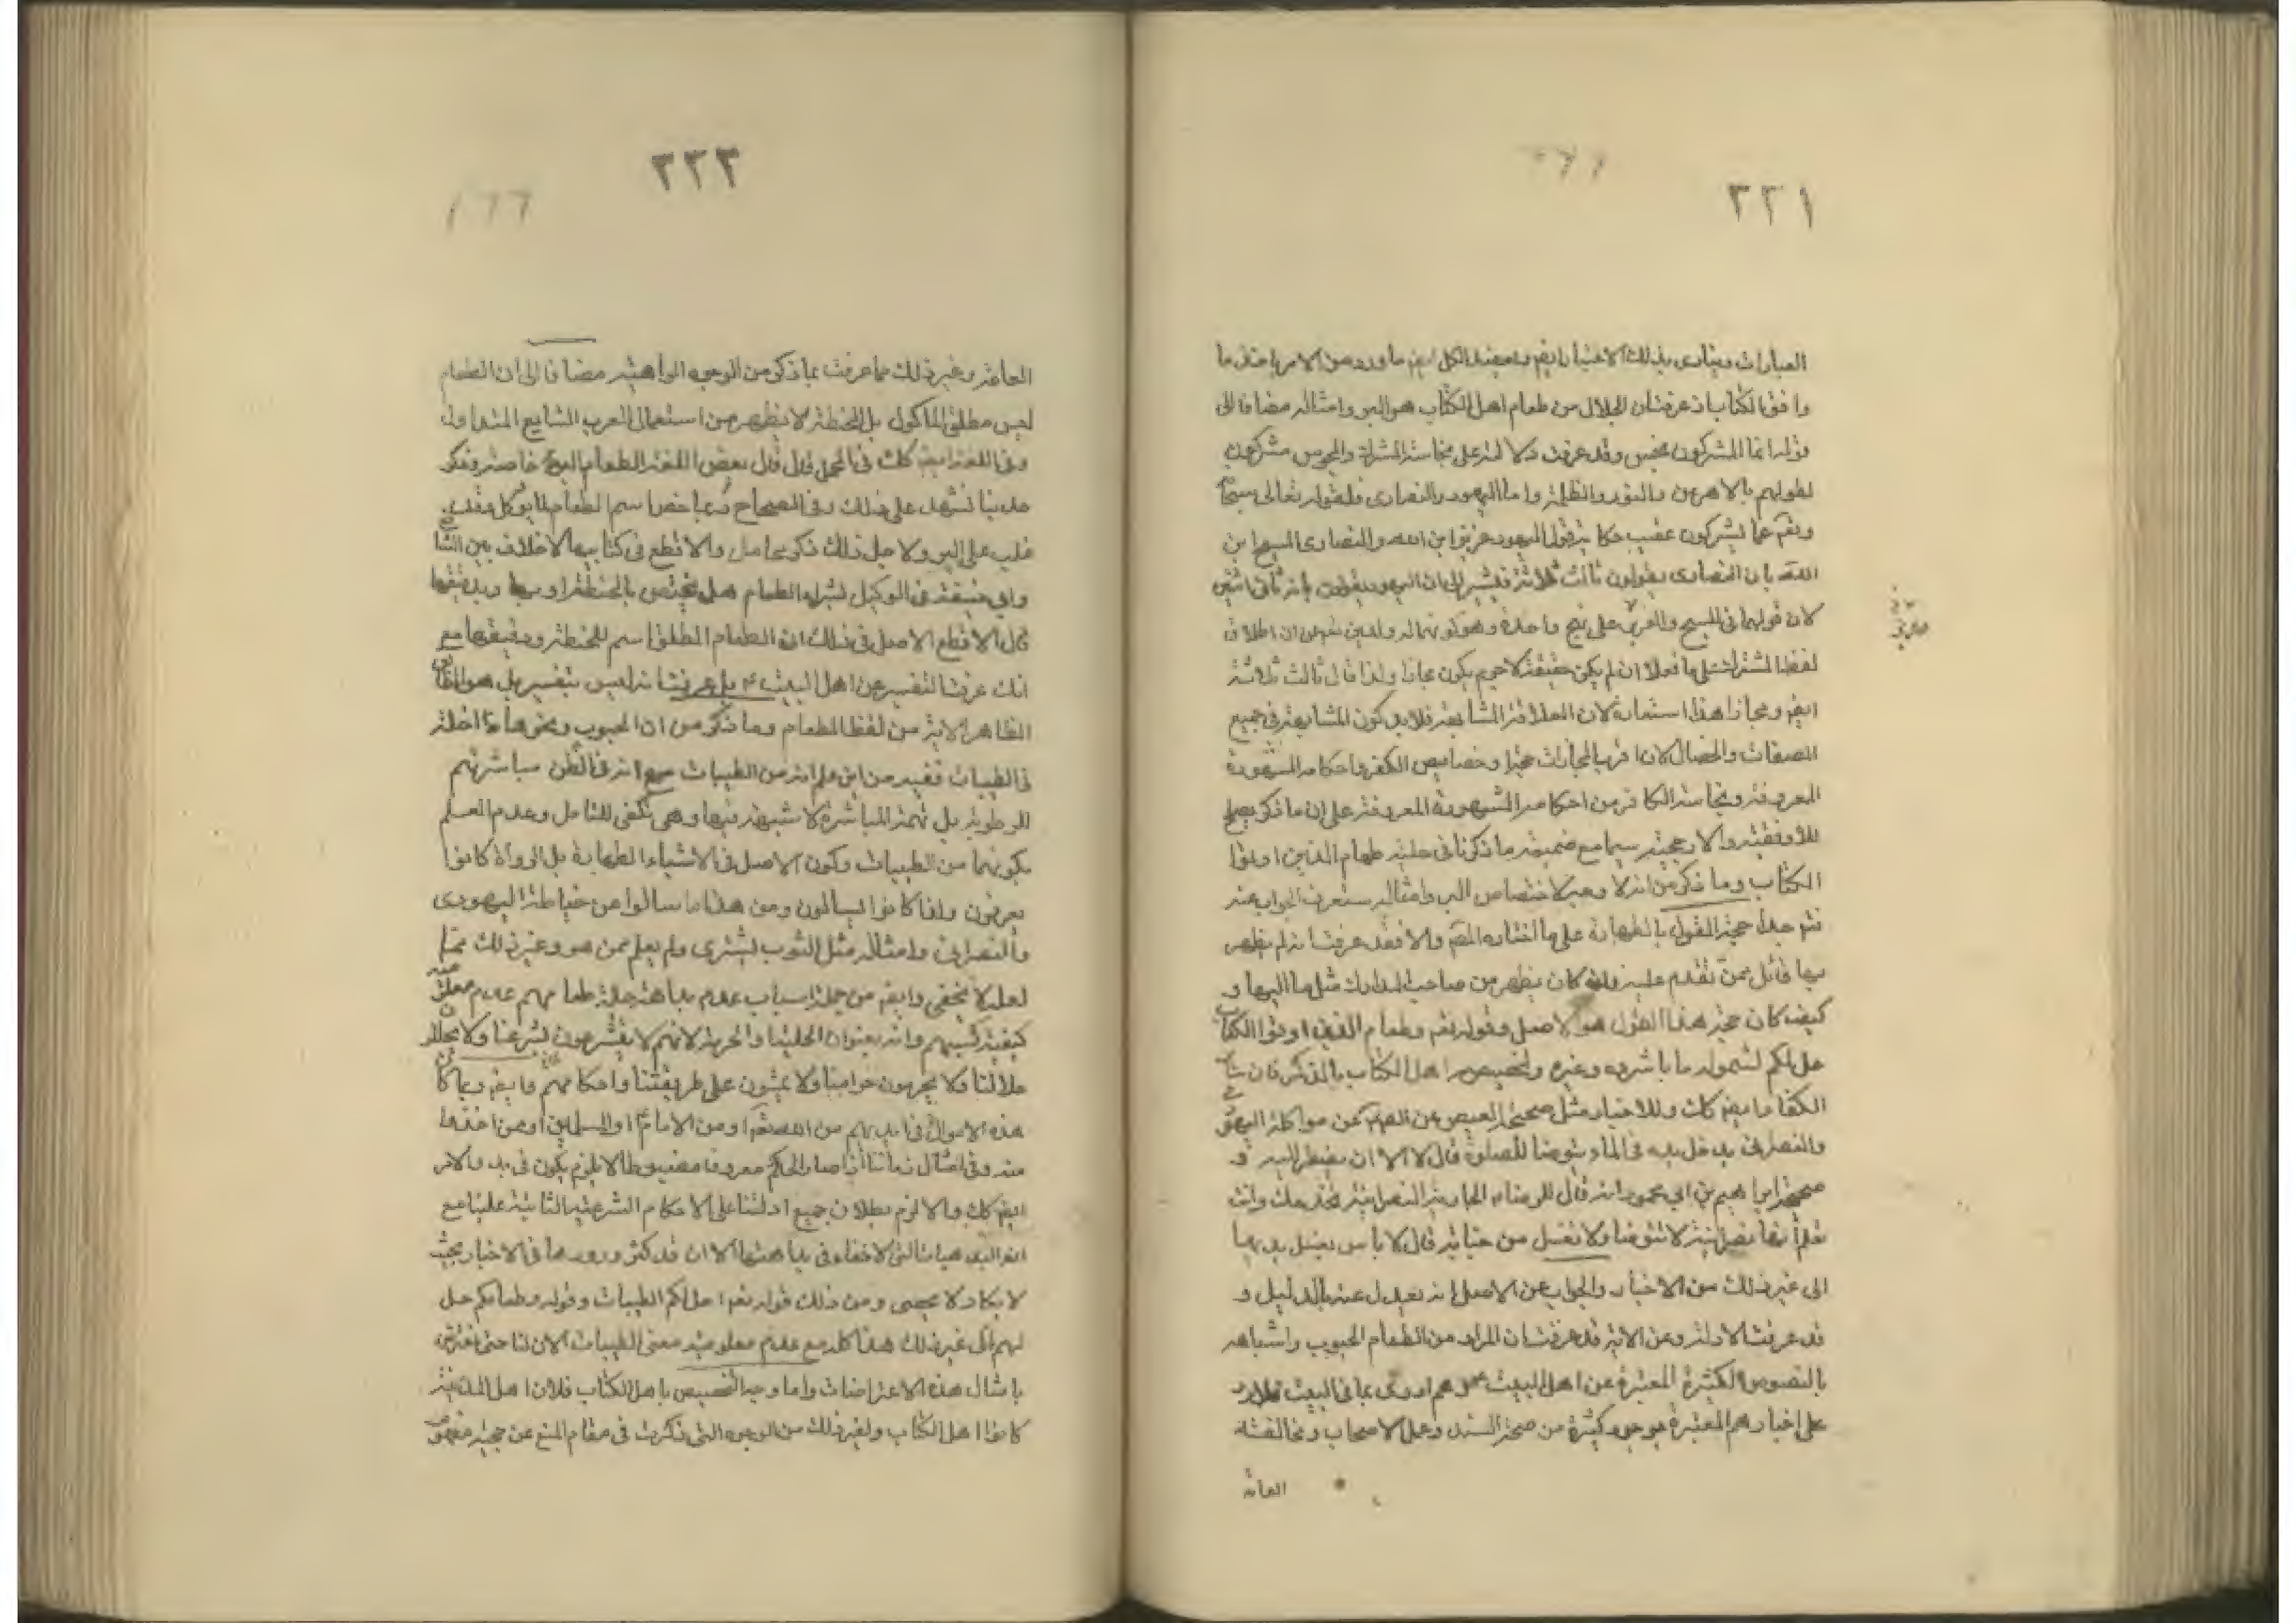 ٢٢١
العبارات وينادى بذلك الاعتبار ايضم ويعضد الكل ايضم ما ورد من الامر باخذ ما
وافق الكتاب اذ عرفت ان الحلال من طعام اهل الكتاب هو البر وامثاله مضافا الى
قوله انما المشركون نجس وقد عرفت دلالته على نجاسة المشرك والمجوس مشركون
لقولهم بالاهرمن والنور والظلمة واما اليهود والنصارى فلقوله تعالى سبحانه
وتعم عما يشركون عقيب حكاية قول اليهود عزير ابن الله والنصارى المسيح ابن
الله بان النصارى يقولون ثالث ثلاثة فيشير الى ان اليهود يقولون بانه ثانى اثنين
لان قولهما فى المسيح والعزير على نهج واحد وهو كونهما له ولدين مع ان اطلاق
لفظ المشرك على ما فعلا ان لم يكن حقيقة لا جرم يكون مجازا ولذا قال ثالث ثلاثة
ايضم ومجازا هذا استعارة لان العلاقة المشابهة فلا بد كون المشابهة فى جميع
الصفات والخصال لان اقرب المجازات حجة وخصايص الكفر واحكامه المشهورة
المعروفة ونجاسة الكافر من احكامه المشهورة المعروفة على ان ما ذكر يصلح
للاوفقية والارجحية سيما مع ضميمة ما ذكرنا فى حلية طعام الذين اوتوا
الكتاب وما ذكر من انه لا وجه لاختصاص البر وامثاله ستعرف الجواب عنه
ثم جدا حجة القول بالطهارة على ما اختاره المصم والا فقد عرفت انه لم يظهر
بها قائل ممن تقدم عليه وان كان يظهر من صاحب المدارك مثل ما اليها و
كيف كان حجة هذا القول هو الاصل وقوله تعم وطعام الذين اوتوا الكتاب
حل لكم لشموله ما باشروه وغيره وتخصيص اهل الكتاب بالذكر فان ساير
الكفار ايضم كك وللاخبار مثل صحيحة العيص عن الصم عن مواكلة اليهودى
والنصرانى يدخل يده فى الماء يتوضأ للصلوة قال لا الا ان يضطر اليه و
صحيحة ابراهيم بن ابي محمود انه قال للرضاء الجارية النصرانية تخدمك وانت
تعلم انها نصرانية لا تتوضأ ولا تغتسل من جنابة قال لا باس تغسل يديها
الى غير ذلك من الاخبار والجواب عن الاصل انه يعدل عنه بالدليل و
قد عرفت الادلة وعن الاية قد عرفت ان المراد من الطعام الحبوب واشباهه
بالنصوص الكثيرة المعتبرة عن اهل البيت هم ادرى بما فى البيت
على اخبارهم المعتبرة بوجوه كثيرة من صحة السند وعمل الاصحاب ومخالفة
العامة
٢٢٢
العامة وغير ذلك مما عرفت بما ذكر من الوجوه الواهية مضافا الى ان الطعام
ليس مطلق الماكول بل الحنطة لا يظهر من استعمال العرب الشايع المتداول
وفى اللغة ايضم كك فى المجمل قال قال بعض اللغة الطعام البر خاصة وذكر
حديثا تشهد على ذلك وفى الصحاح ربما خص اسم الطعام لما يوكل وقد
غلب على البر ولاجل ذلك ذكر والاقطع فى كتابيهما الاخلاف بين الشافعى
وابي حنيفة فى الوكيل لشراء الطعام هل يختص بالحنطة او بها وبدقيقها
قال الاقطع الاصل فى ذلك ان الطعام المطلق اسم للحنطة ودقيقها مع
انك عرفت التفسير عن اهل البيت بل عرفت انه ليس بتفسير بل هو
الظاهر الاية من لفظ الطعام وما ذكر من ان الحبوب ونحوها داخلة
فى الطيبات ففيه من اين علم انه من الطيبات مع انه فى الظن مباشرتهم
للرطوبة بل تهمة المباشرة لا شبهة فيها وهى تكفى للتامل وعدم العلم
بكونها من الطيبات وكون الاصل فى الاشياء الطهارة بل الرواة كانوا
يعرفون ولذا كانوا يسالون ومن هذا ما سالوا عن خياطة اليهودى
والنصرانى وامثاله مثل الثوب ليشترى ولم يعلم ممن هو وغير ذلك مما
لعله لا يخفى وايضم من جملة اسباب عدم بداهة حلية طعامهم عدم معلومية
كيفية كسبهم وانه بعنوان الحلية او الحرمة لانهم لا يتشرعون بشرعنا ولا يحللون
حلالنا ولا يحرمون حرامنا ولا يمشون على طريقتنا واحكامهم وايضم وربما كان
هذه الاموال فى ايديهم من الله تعم او من الامام او المسلمين او ممن اخذوا
منه وفى امثال زماننا انما صار الحكم معروفا مضبوطا لا يلزم يكون فى بدو الامر
ايضم كك والا لزم بطلان جميع ادلتنا على الاحكام الشرعية الثابتة علينا مع
انها البديهيات التى لا خفاء فى بداهتها الا ان قد كثر ورودها فى الاخبار بحيث
لا يكاد لا يحصى ومن ذلك قوله تعم احل لكم الطيبات وقوله وطعامكم حل
لهم الى غير ذلك هذا كله مع عدم معلومية معنى الطيبات الان لنا حتى نعترض
بامثال هذه الاعتراضات واما وجه التخصيص باهل الكتاب فلان اهل المدينة
كانوا اهل الكتاب ولغير ذلك من الوجوه التى ذكرت فى مقام المنع عن حجية مفهوم